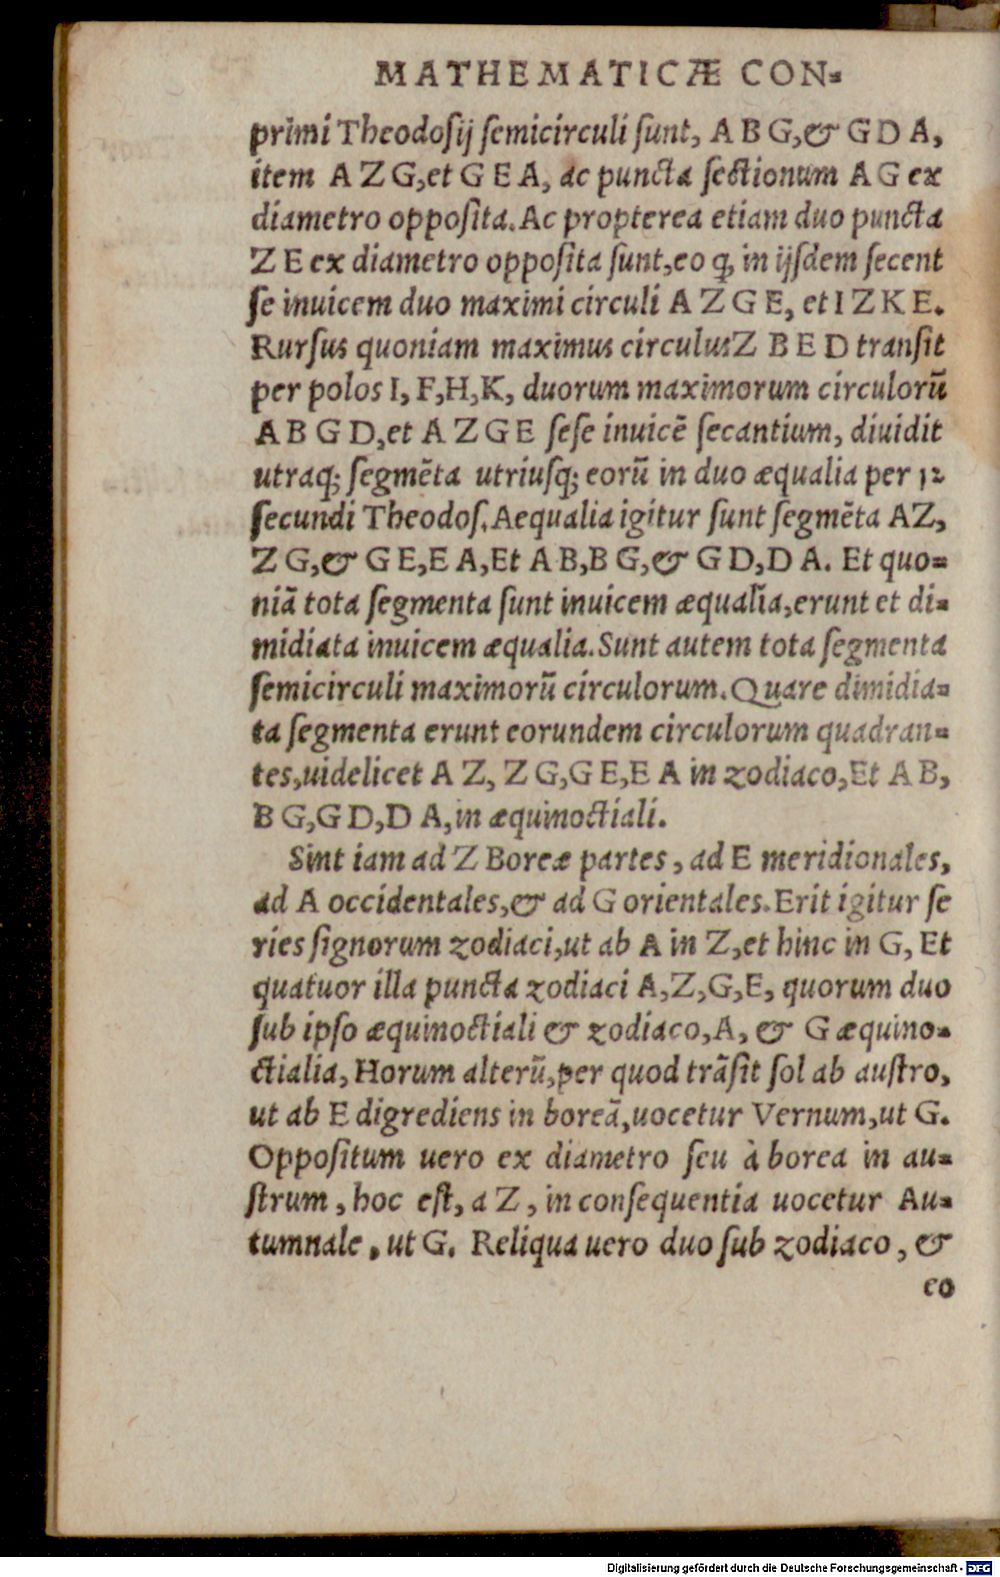 MATHEMATICÆ CON-
primi Theodosij semicirculi sunt, A B G,& G D A,
item A Z G,et G E A, ac puncta sectionum A G ex
diametro opposita. Ac propterea etiam duo puncta
Z E ex diametro opposita sunt,eo q̃, in ijsdem secent
se inuicem duo maximi circuli A Z G E, et I Z K E.
Rursus quoniam maximus circulus Z B E D transit
per polos I, F,H,K, duorum maximorum circulorũ
A B G D,et A Z G E sese inuicẽ secantium, diuidit
utraq; segmẽta utriusq; eorũ in duo æqualia per 12
secundi Theodos. Aequalia igitur sunt segmẽta AZ,
Z G,& G E,E A,Et A B,B G,& G D,D A. Et quo-
niã tota segmenta sunt inuicem æqualia,erunt et di-
midiata inuicem æqualia. Sunt autem tota segmenta
semicirculi maximorũ circulorum. Quare dimidia-
ta segmenta erunt eorundem circulorum quadran-
tes,uidelicet A Z, Z G,G E,E A in zodiaco,Et A B,
B G,G D,D A,in æquinoctiali.
Sint iam ad Z Boreæ partes, ad E meridionales,
ad A occidentales,& ad G orientales. Erit igitur se
ries signorum zodiaci,ut ab A in Z,et hinc in G, Et
quatuor illa puncta zodiaci A,Z,G,E, quorum duo
sub ipso æquinoctiali & zodiaco,A, & G æquino-
ctialia, Horum alterũ,per quod trãsit sol ab austro,
ut ab E digrediens in boreã,uocetur Vernum,ut G.
Oppositum uero ex diametro seu à borea in au-
strum, hoc est, a Z, in consequentia uocetur Au-
tumnale, ut G. Reliqua uero duo sub zodiaco, &
eo
Digitalisierung gefördert durch die Deutsche Forschungsgemeinschaft - DFG